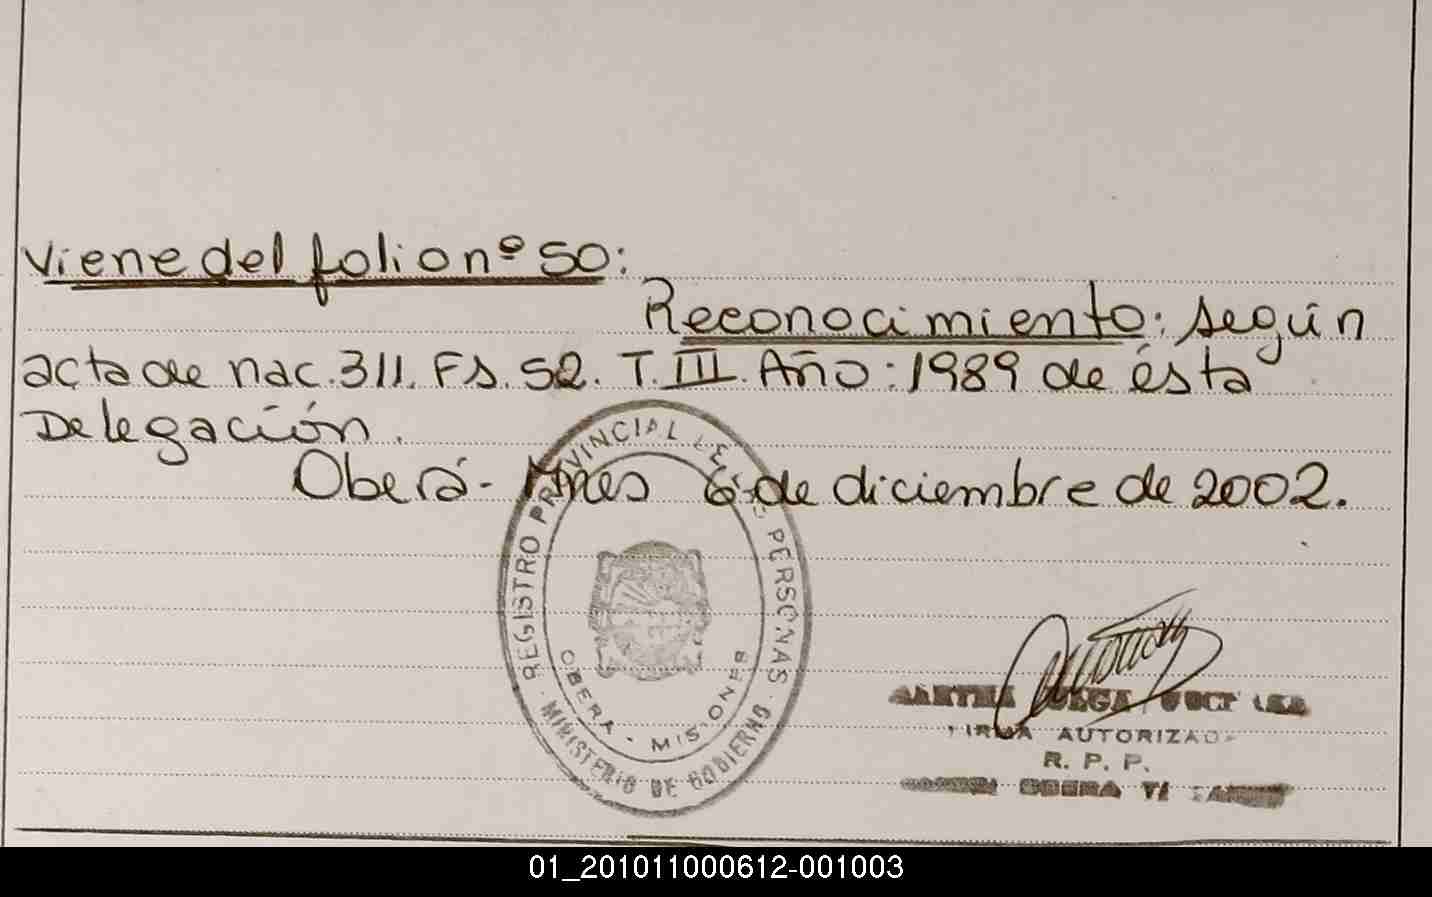 Viene del folio nº 50:
Reconocimiento: según
acta de nac. 311. Fs. 52. T. III. Año: 1989 de ésta
Delegación.
Oberá - Mnes 6 de diciembre de 2002.
REGISTRO PROVINCIAL DE LAS PERSONAS
OBERA - MISIONES
MINISTERIO DE GOBIERNO
FIRMA AUTORIZADA
R. P. P.
OBERA
01_201011000612-001003